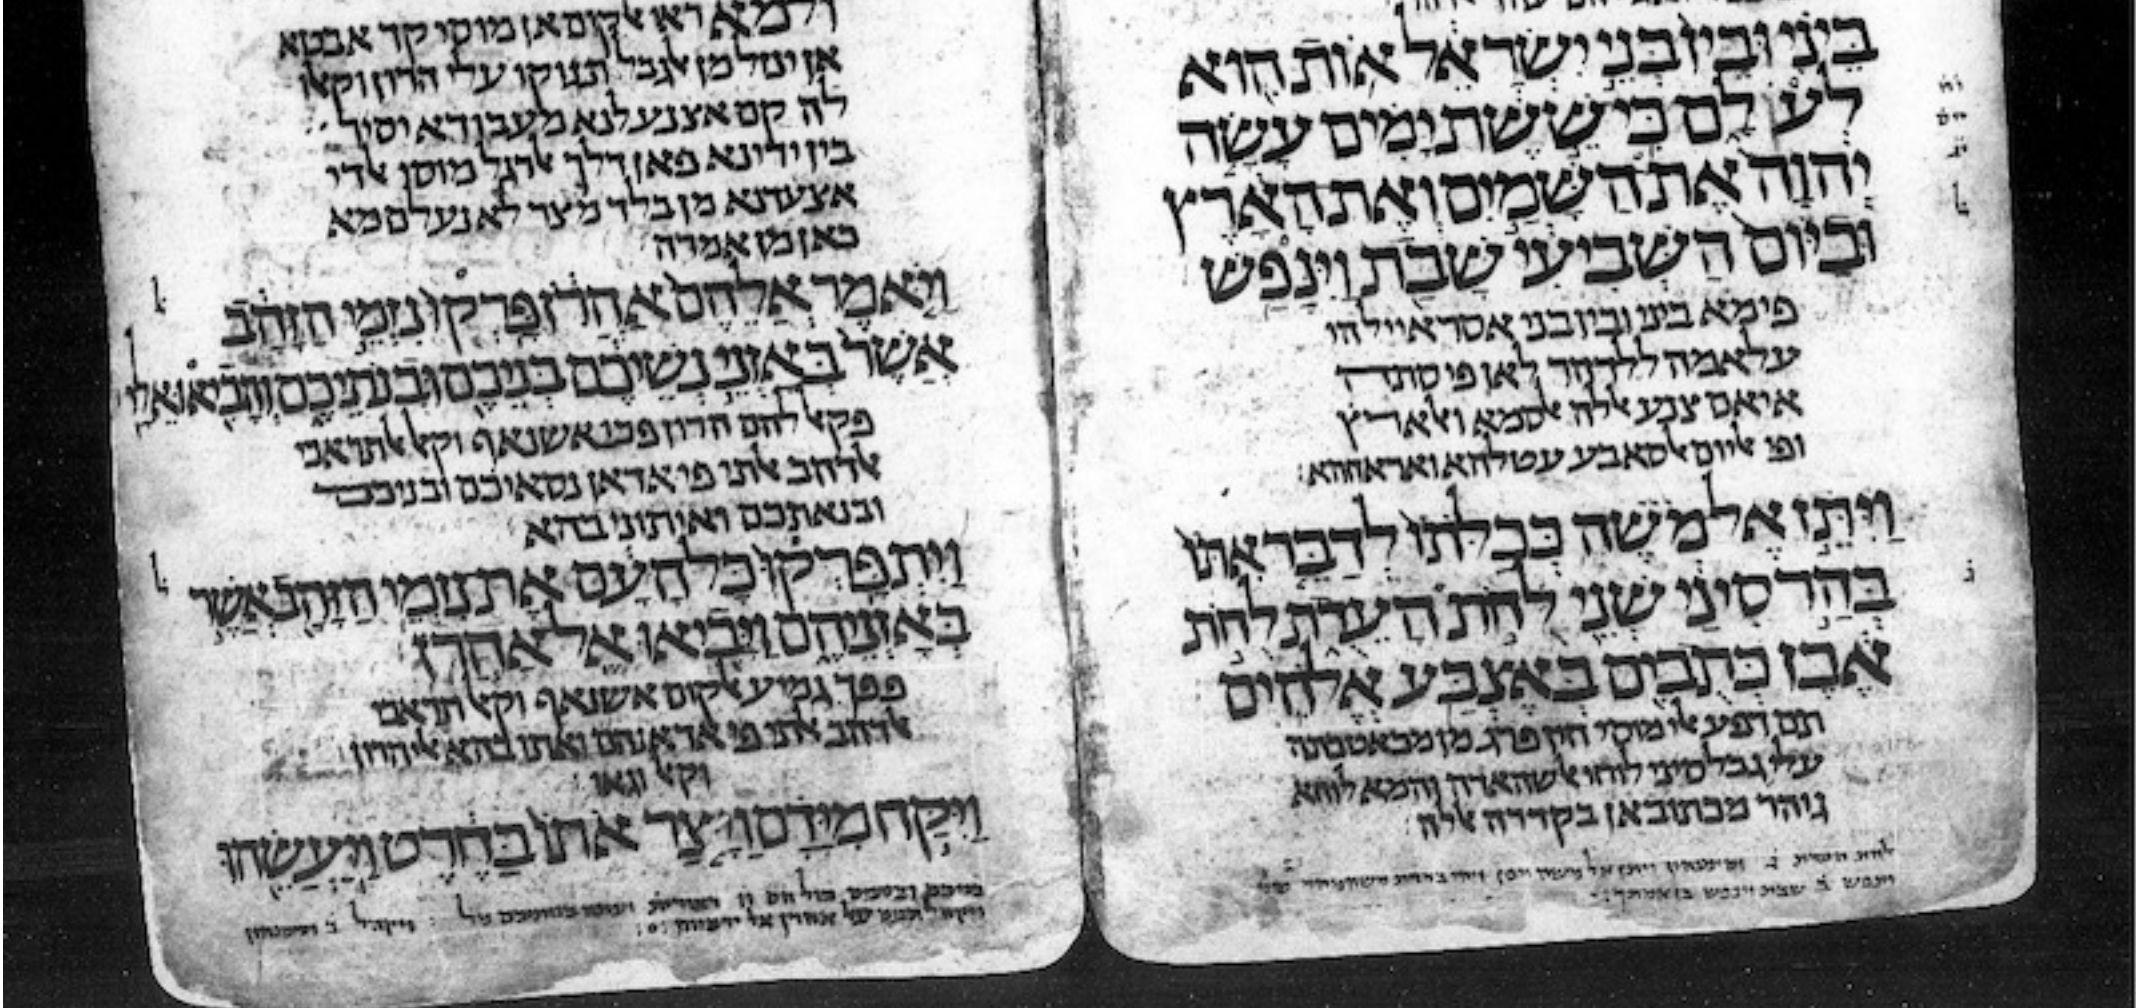 ביני ובין בני ישראל אות הוא
לעלם כי ששת ימים עשה
יהוה את השמים ואת הארץ
וביום השביעי שבת וינפש
פימא ביני ובין בני אסראייל הו
עלאמה ללדהר לאן פי סתה
איאם צנע אלה אלסמא ואלארץ
ופי אליום אלסאבע עטלהא ואראחהא:
ויתן אל משה ככלתו לדבר אתו
בהר סיני שני לחת העדת לחת
אבן כתבים באצבע אלהים
תם דפע אלי מוסי חין פרג מן מכאטבתה
עלי גבל סיני לוחי אלשהאדה והמא לוחא
גוהר מכתובאן בקדרה אלה
לחת העדת
וינפש שבת וינפש
ולמא ראו אלקום אן מוסי קד אבטא
אן ינזל מן אלגבל תגוקו עלי הרון וקאלו
לה קם אצנע לנא מעבודא יסיר
בין ידינא פאן דלך אלרגל מוסי אלדי
אצעדנא מן בלד מצר לא נעלם מא
כאן מן אמרה
ויאמר אלהם אהרן פרקו נזמי הזהב
אשר באזני נשיכם בניכם ובנתיכם והביאו אלי
פקאל להם הרון פכו אשנאף וקיל
אלדהב אלתי פי אדאן נסאיכם ובניכם
ובנאתכם ואיתוני בהא
ויתפרקו כל העם את נזמי הזהב אשר
באזניהם ויביאו אל אהרן
פפך גמיע אלקום אשנאף וקיל
אלדהב אלתי פי אדאנהם ואתו בהא אלי הרון
ויקח מידם ויצר אתו בחרט ויעשהו